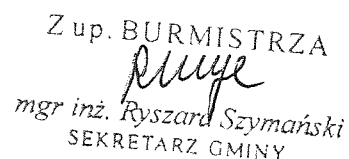 Z up. BURMISTRZA
mgr inż. Ryszard Szymański
SEKRETARZ GMINY